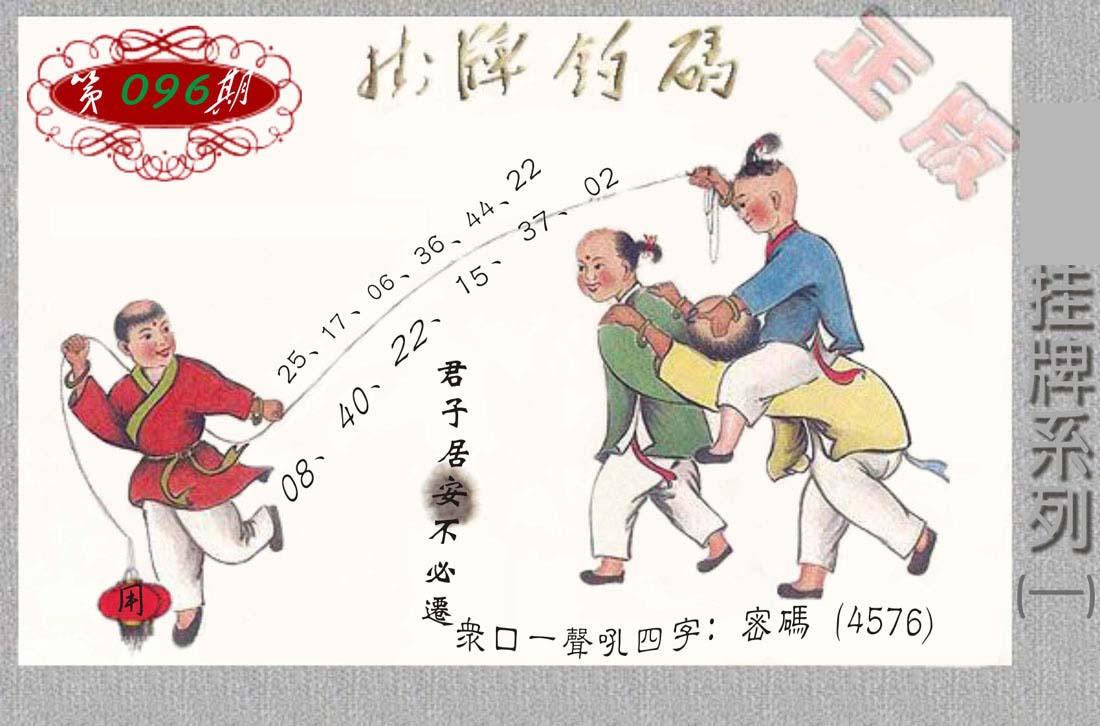 第096期
掛牌釣碼
正版
25、17、06、36、44、22
08、40、22、15、37、02
君子居安不必遷
用
衆口一聲吼四字：密碼 (4576)
挂牌系列(一)